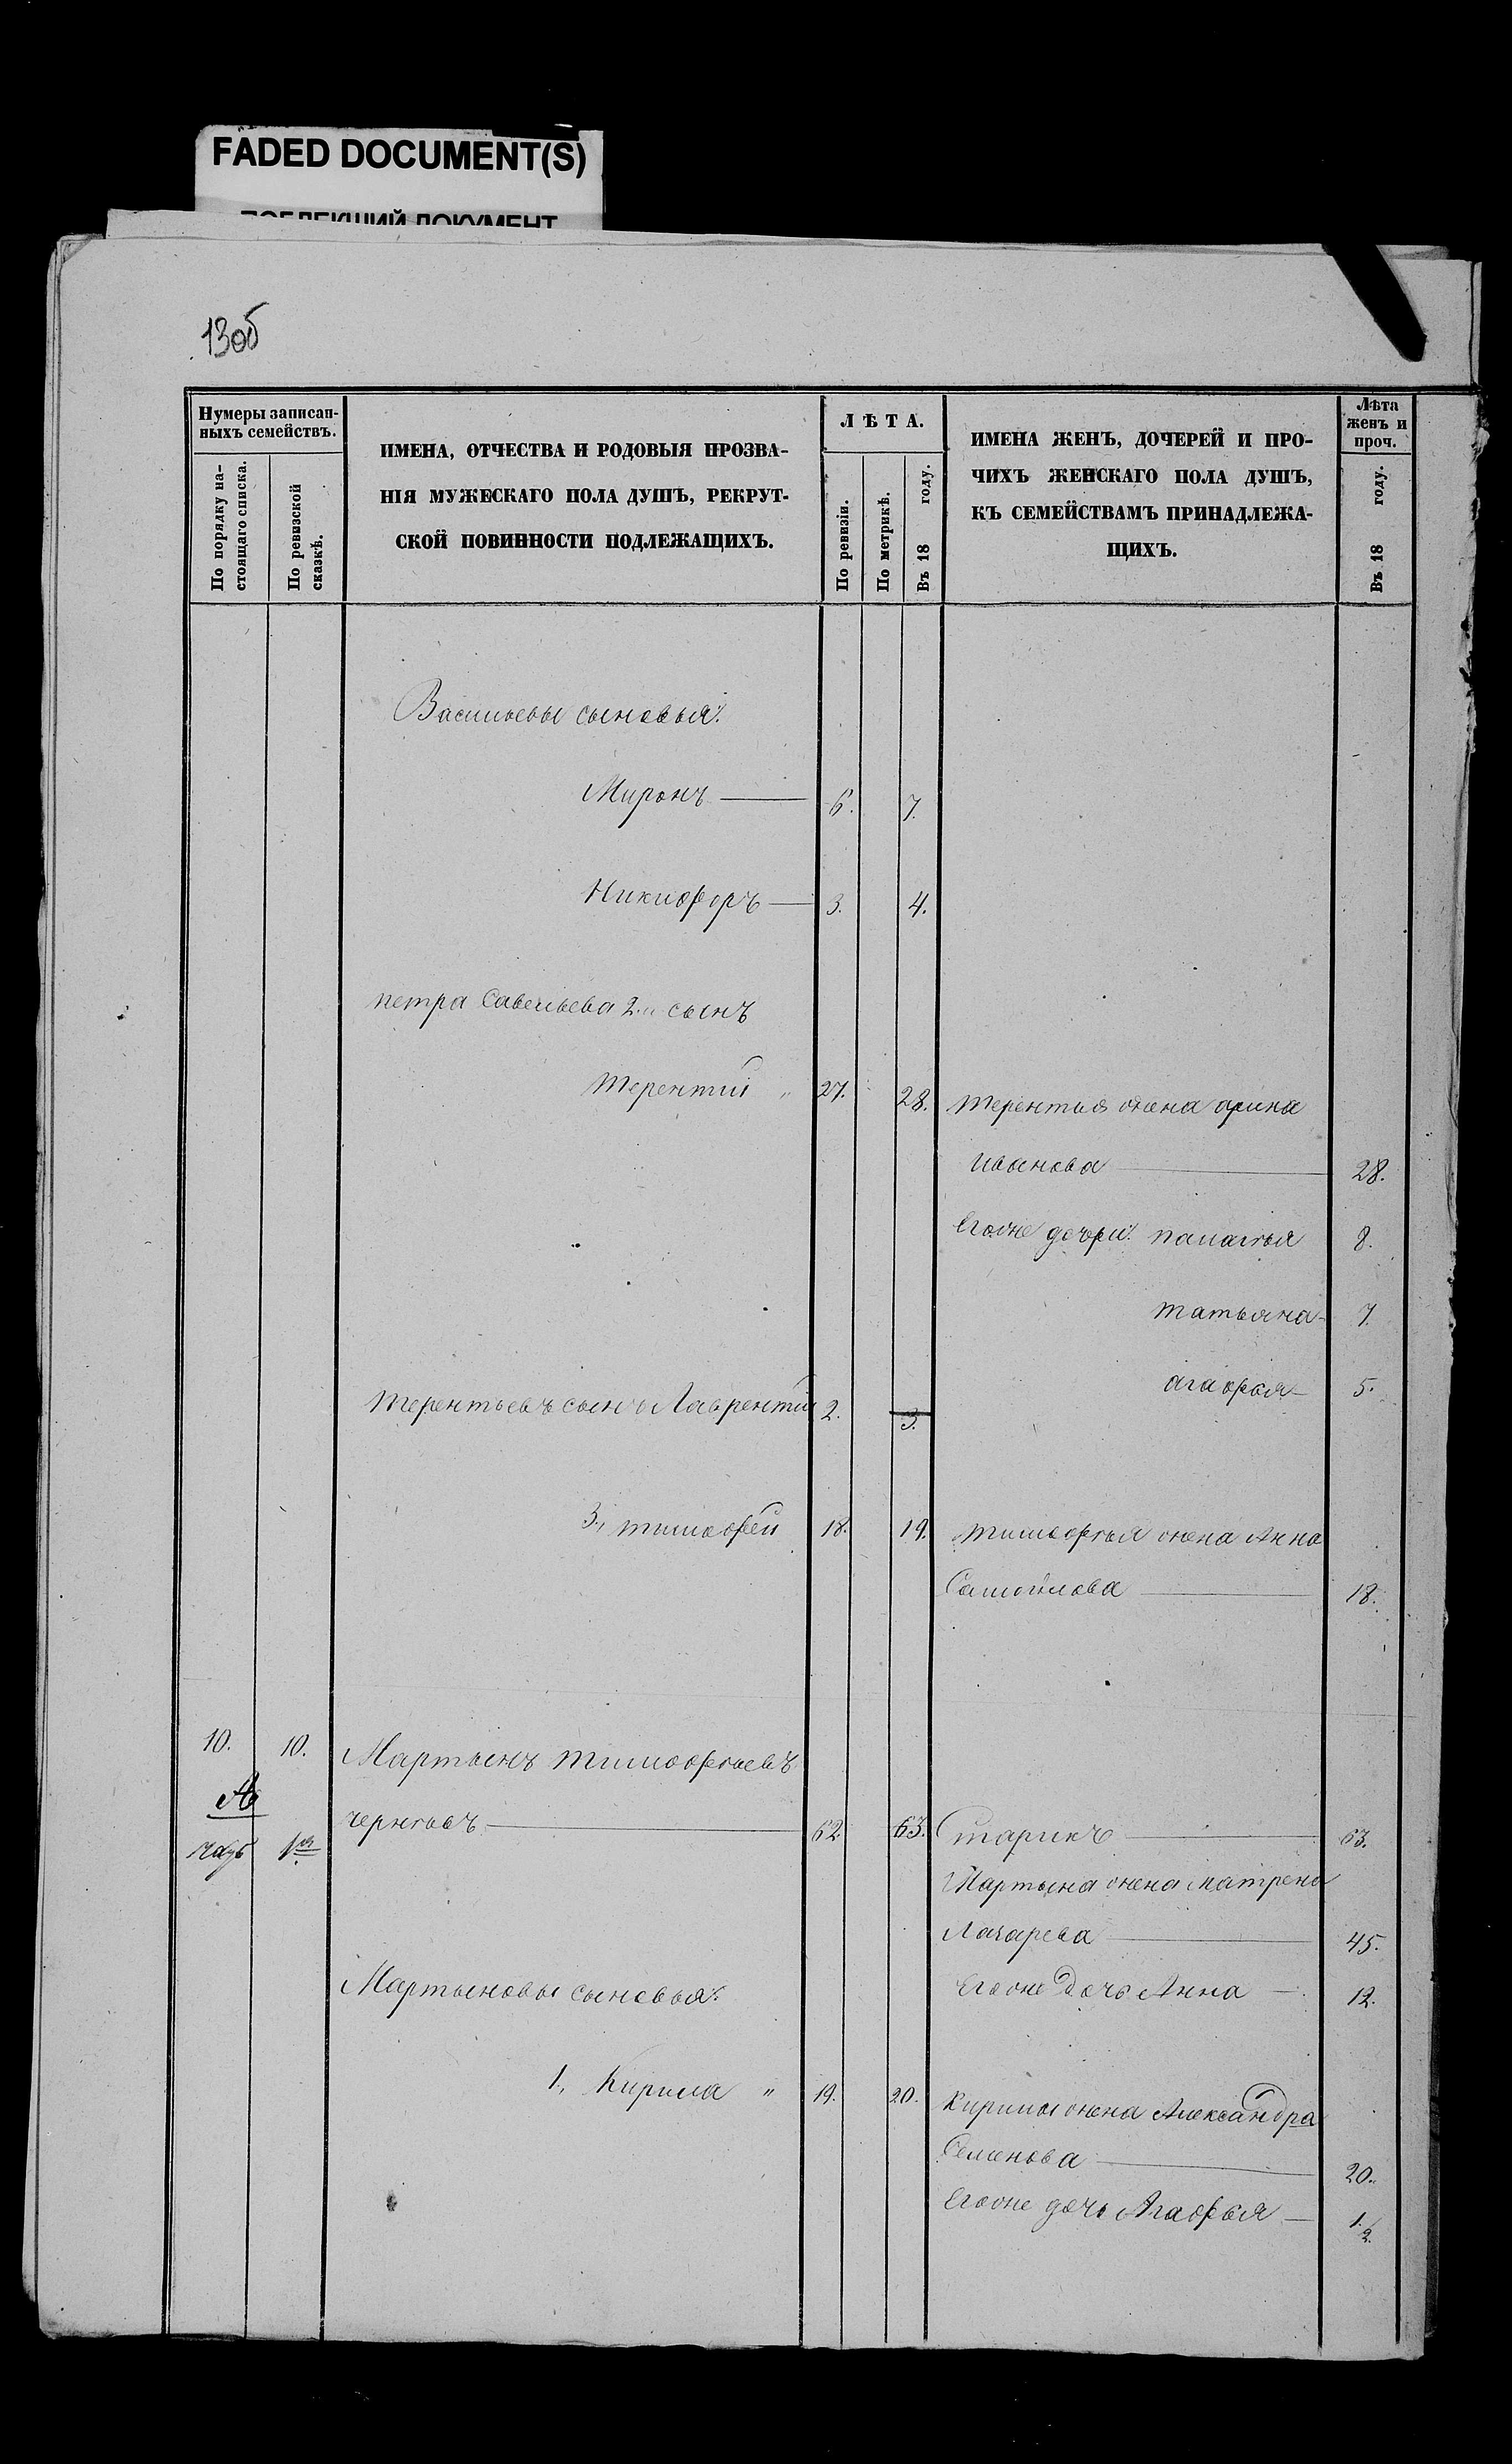 FADED DOCUMENT(S)
ПОБЛЕКШИЙ ДОКУМЕНТ
13об
Нумеры записан-
ныхъ семействъ.
По порядку на-
стоящаго списка.
По ревизской
сказкѣ.
ИМЕНА, ОТЧЕСТВА И РОДОВЫЯ ПРОЗВА-
НІЯ МУЖЕСКАГО ПОЛА ДУШЪ, РЕКРУТ-
СКОЙ ПОВИННОСТИ ПОДЛЕЖАЩИХЪ.
ЛѢТА.
По ревизіи.
По метрикѣ.
Въ 18 году.
ИМЕНА ЖЕНЪ, ДОЧЕРЕЙ И ПРО-
ЧИХЪ ЖЕНСКАГО ПОЛА ДУШЪ,
КЪ СЕМЕЙСТВАМЪ ПРИНАДЛЕЖА-
ЩИХЪ.
Лѣта
женъ и
проч.
Въ 18 году.
Васильевы сыновья:
Миронъ — 6. 7.
Никифоръ — 3. 4.
петра Савельева 2.й сынъ
терентий " 27. 28. терентья жена арина
Иванова — 28.
Егоже дочери: палагѣя 8.
татьяна - 7.
агафья - 5.
терентьевъ сынъ Лаврентий 2. 3.
3., тимофей 18. 19. тимофѣя жена Анна
Самойлова — 18.
10. 10. Мартынъ тимофѣевъ
чернѣевъ — 62. 63. Старикъ — 63.
1я
Мартына жена матрена
Лазарева — 45.
Мартыновы сыновья: Егоже дочь Анна — 12.
1., Кирила " 19. 20. Кирилы жена Александра
Семенова — 20.
Егоже дочь Агафья — 1/2